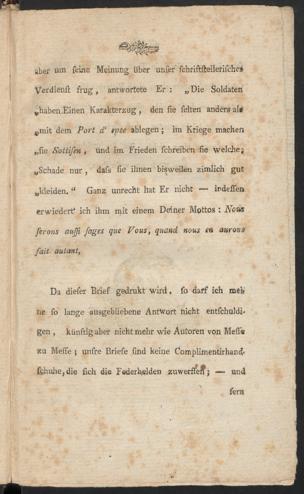 aber um seine Meinung über unser schriftstellerisches
Verdienst frug, antwortete Er: „Die Soldaten
„haben Einen Karakterzug, den sie selten anders als
„mit dem Port d' epée ablegen; im Kriege machen
„sie Sottisen, und im Frieden schreiben sie welche;
„Schade nur, dass sie ihnen bisweilen zimlich gut
„kleiden.“ Ganz unrecht hat Er nicht — indessen
erwiedert' ich ihm mit einem Deiner Mottos: Nous
serons aussi sages que Vous, quand nous en aurons
fait autant,
Da dieser Brief gedrukt wird, so darf ich mei
ne so lange ausgebliebene Antwort nicht entschuldi-
gen, künftig aber nicht mehr wie Autoren von Messe
zu Messe; unsre Briefe sind keine Complimentirhand-
schuhe, die sich die Federhelden zuwerffen; — und
fern